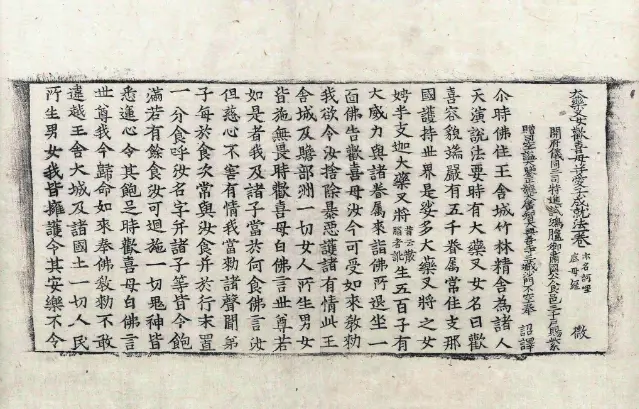 大藥叉女歡喜母并愛子成就法一卷 亦名訶哩底母經 微
開府儀同三司特進試鴻臚卿肅國公食邑三千戶賜紫
贈司空謚大鑒正號大廣智大興善寺三藏沙門不空奉 詔譯
尒時佛住王舍城竹林精舍為諸人
天演說法要時有大藥叉女名曰歡
喜容貌端嚴有五千眷屬常住支那
國護持世界是娑多大藥叉將之女
娉半支迦大藥叉將 昔云散脂者訛 生五百子有
大威力與諸眷屬來詣佛所退坐一
面佛告歡喜母汝今可受如來教勑
我欲令汝捨除暴惡護諸有情此王
舍城及贍部洲一切女人所生男女
皆施無畏時歡喜母白佛言世尊若
如是者我及諸子當於何食佛言汝
但慈心不害有情我當勑諸聲聞弟
子每於食次常與汝食并於行末置
一分食呼汝名字并諸子等皆令飽
滿若有餘食汝可迴施一切鬼神皆
悉運心令其飽足時歡喜母白佛言
世尊我今歸命如來奉佛教勑不敢
違越王舍大城及諸國土一切人民
所生男女我皆擁護令其安樂不令